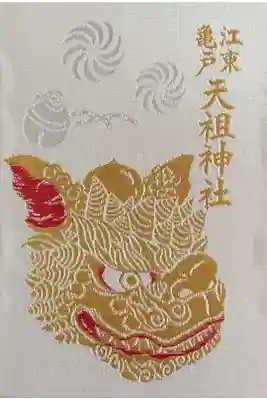 江東
亀戸
天祖神社